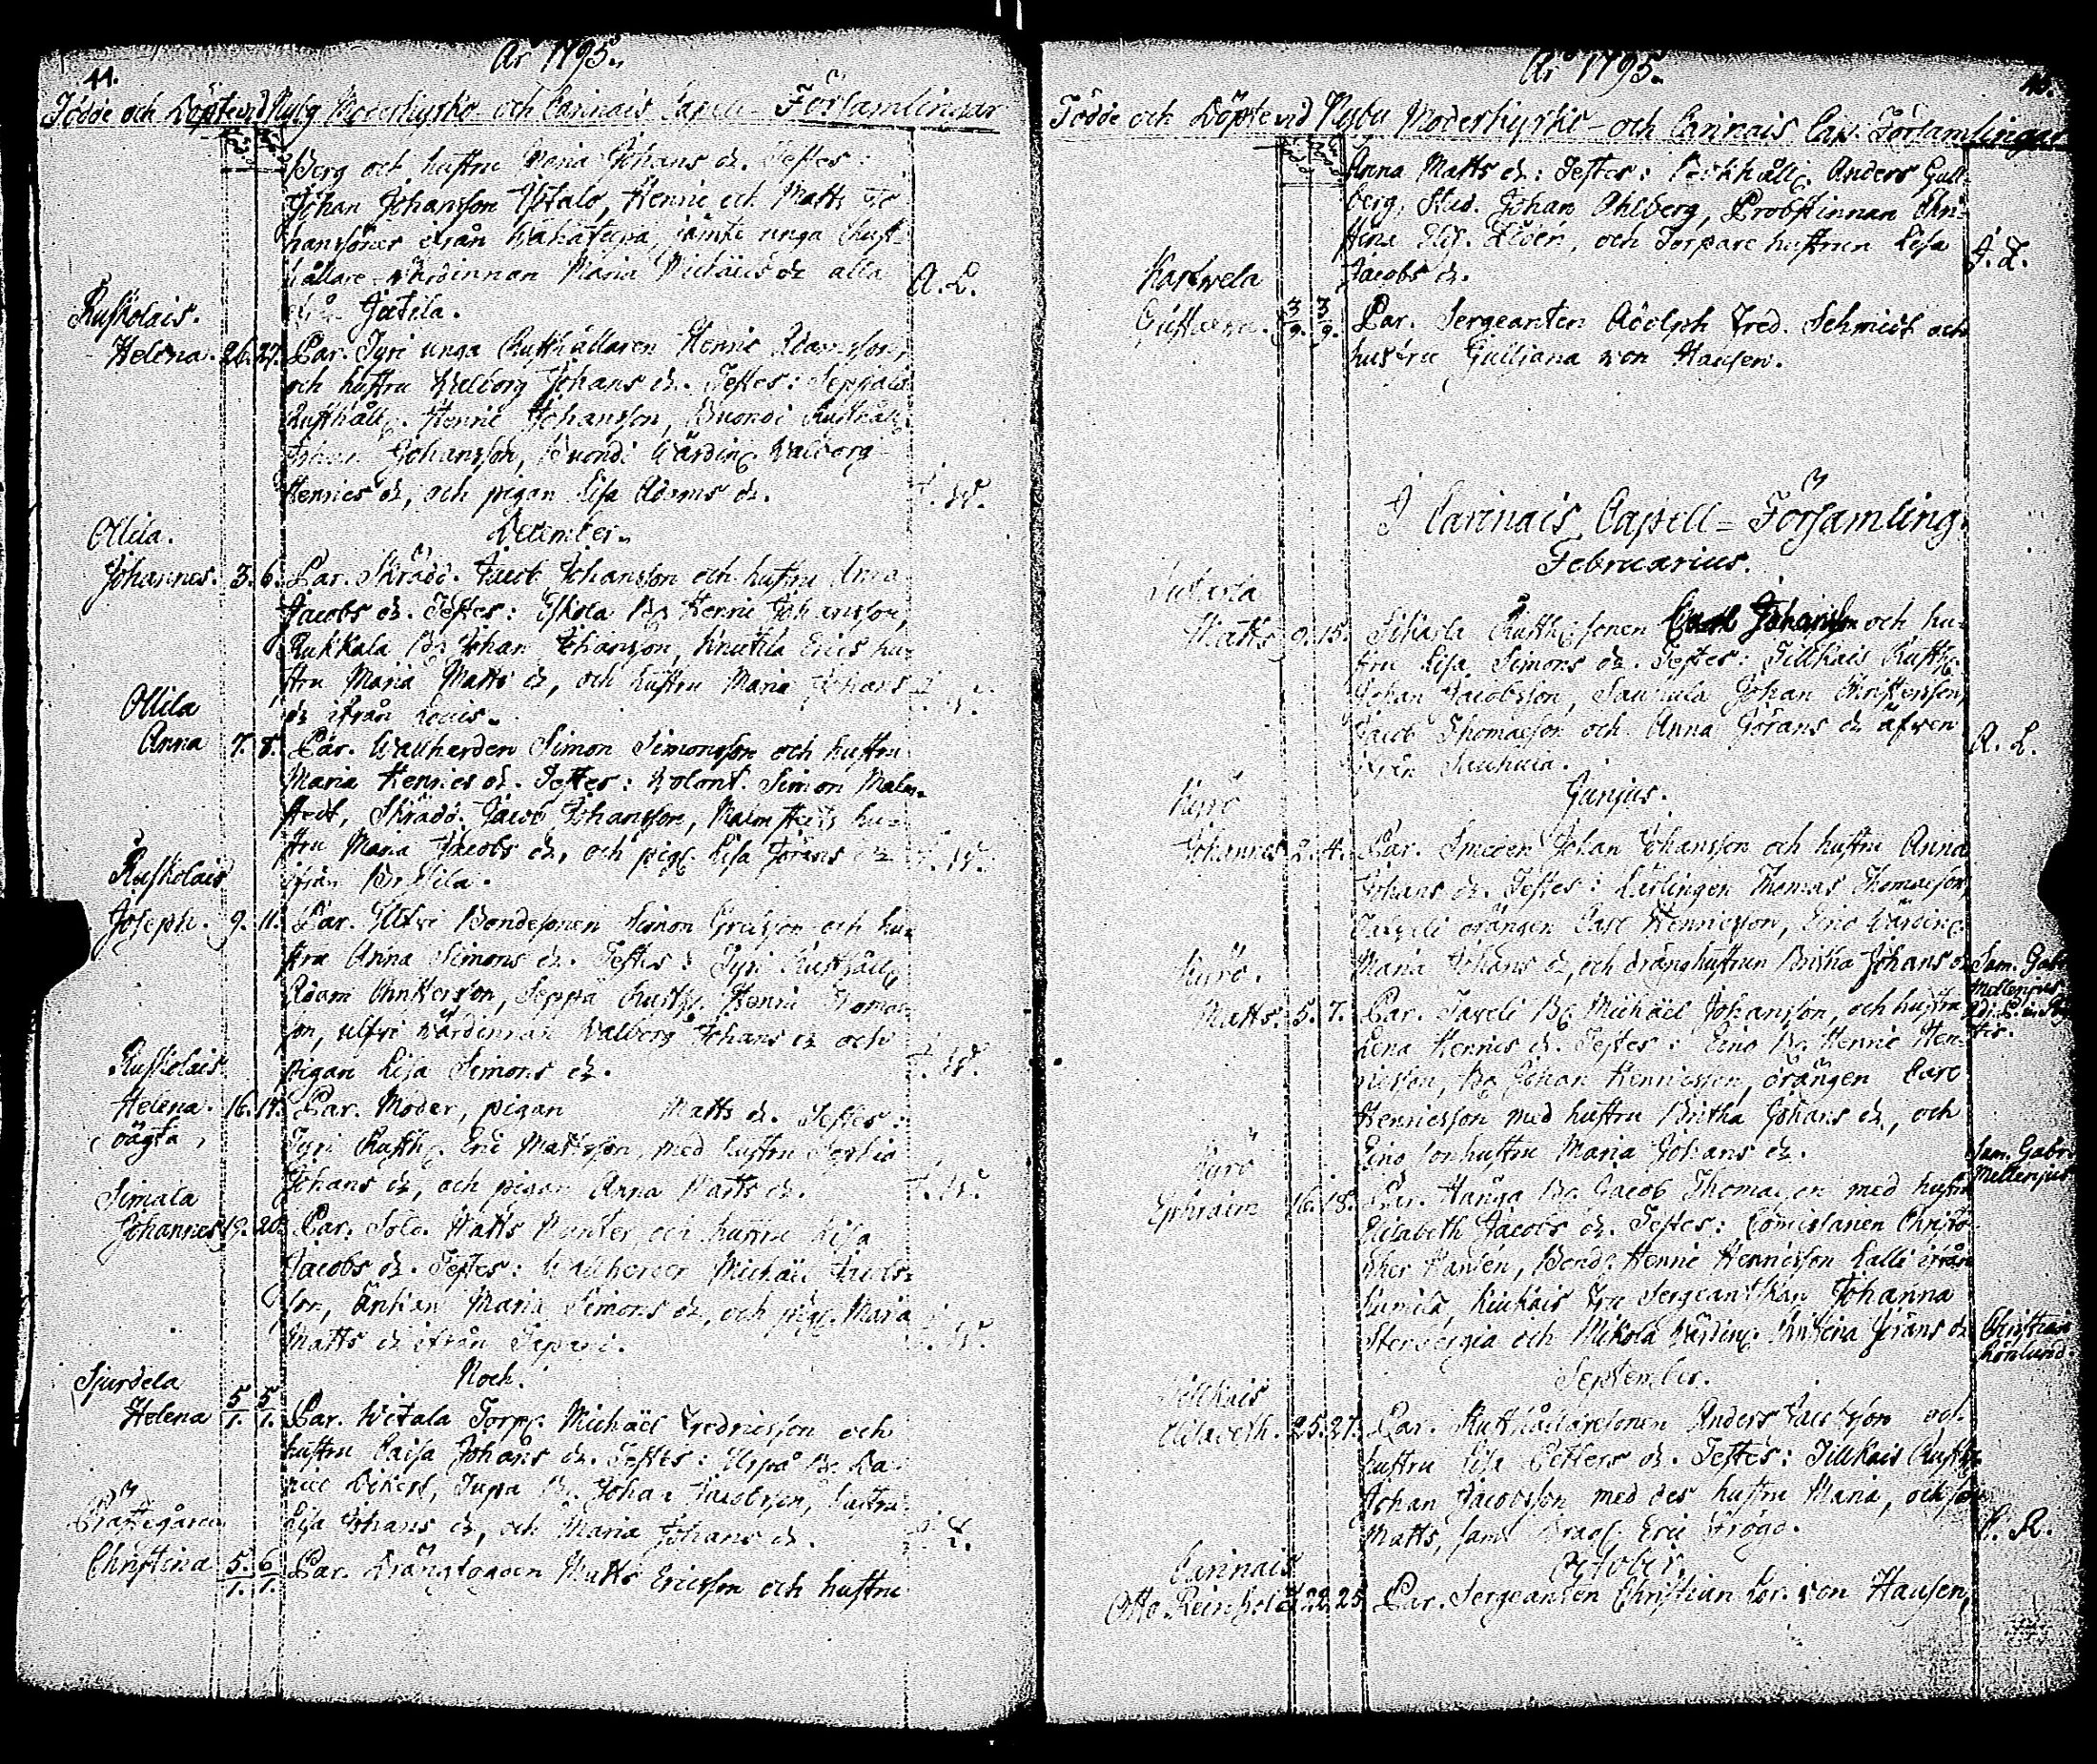 År 1795.
44.
Födde och Döpte vid Kyby Moderkyrko- och Carinais Capell-Församlingar
Berg och hustru Maria Johans dr. Testes:
Johan Johansson Ystalo, Henric och Matts Jo-
hanssöner ifrån Wahatupa, jämte unga Rust-
hållare-Wärdinnan Maria Michäels dr alla
Jootila. A. L.
Ruskolais.
Helena. 26. 27. Par. Tyri unga Rusthållaren Henric Adamsson,
och hustru Walborg Johans dr. Testes:
Rusthåll. Henric Johansson, Buondi Rusthåll.
Johansson, Buondi Wärdin. Walborg
Henrics dr, och pigan Lisa Adams dr. W.
December.
Ollila.
Johannes. 3. 6. Par. Skrädd. Jacob Johansson och hustru Anna
Jacobs dr. Testes: Yskola Bd. Henric Johansson,
Rukkala Bd. Johan Johansson, Knutila Erics hu-
stru Maria Matts dr, och hustru Maria Johans
dr ifrån Louis.
Ollila
Anna 7. 8. Par. Wallherden Simon Simonsson och hustru
Maria Henrics dr. Testes: Volont. Simon Malm-
stedt, Skrädd. Jacob Johansson, Malmstedts hu-
stru Maria Jacobs dr, och pig. Lisa Jörans dr W.
ifrån
Ruskolais
Joseph. 9. 11. Par. Ylfvi Bondesonen Simon Ericsson och hu-
stru Anna Simons dr. Testes: Tyri Rusthåll.
Adam Christersson, Seppä Rusth. Henric Thomas-
son, ulfvi Wärdinnan Walborg Johans dr och
pigan Lisa Simons dr. W.
Ruskolais
Helena. 16. 17. Par. Moder, pigan Matts dr. Testes:
oägta, Tyri Rusth. Eric Mattsson, med hustru Sophia
Johans dr, och pigan Anna Matts dr. W.
Simala
Johannes 19. 20. Par. Sold. Matts Munter, och hustru Lisa
Jacobs dr. Testes: Wallherden Michäel Jacobs-
son, Änkan Maria Simons dr, och pig. Maria
Matts dr ifrån W.
Noch.
Sjurdela
Helena 5/1. 5/1. Par. Witala Torp. Michäel Fredricsson och
hustru Caisa Johans dr. Testes: Bd. Da-
niel Tupa Bd. Johan Jacobsson, hustru
Lisa Johans dr, och Maria Johans dr. L.
Prästegården
Christina 5/1. 6/1. Par. Drängkarlen Matts Ericsson och hustru
År 1795.
45.
Födde och Döpte vid Kyby Moderkyrko- och Carinais Cap. Församlingar
Anna Matts dr: Testes: Anders Gull-
berg, Stud. Johan Ohlberg, Probstinnan Chri-
stina Elis. och Torpare hustrun Lisa
Jacobs dr. J. L.
Karwela
Gustaera. 3/9. 3/9. Par. Sergeanten Adolph Fred. Schmidt och
hustru Gulliana von Hausen.
I Carinais Capell-Församling.
Februarius.
Matts 9. 15. Rusth. sonen Carl Johansson och hu-
stru Lisa Simons dr. Testes: Tillkais Rusth.
Johan Jacobsson, Sauhula Johan Christersson,
Jacob Thomasson och Anna Görans dr äfven
ifrån Sauhula. A. L.
Junius.
Kyrö
Johannes 2. 4. Par. Smeden Johan Johansson och hustru Anna
Johans dr. Testes: Lärlingen Thomas Thomasson,
drängen Carl Henricsson, Eino Wärdin.
Maria Johans dr, och dränghustrun Britha Johans dr
Sam. Gab.
Mellenius
Kyrö.
Matts. 5. 7. Par. Taveli Bd. Michäel Johansson, och hustru
Lena Henrics dr. Testes: Eino Bd. Henric Hen-
ricsson, Bd. Johan Henricsson, drängen Carl
Henricsson med hustru Britha Johans dr, och
Eino sonhustru Maria Johans dr.
Sam. Gabr.
Mellenius
Kyrö
Ephraim 16. 18. Par. Hanga Bd. Jacob Thomasson med hustru
Elisabeth Jacobs dr. Testes: Comissarien Christo-
pher Hansén, Bond. Henric Henricsson Lalli ifrån
fru Sergeantskan Johanna
och Mikola Wärdin. Christina Jörans dr
Christian
Lönlund.
September.
Tillkais
Elisabeth. 25. 27. Par. Rusthållaresonen Anders Jacobsson och
hustru Lisa Petters dr. Testes: Tillkais Rusth.
Johan Jacobsson med des hustru Maria, och son
Matts, samt Eric Frögd. R.
October.
Carinais
Otto Reinhold 22. 25. Par. Sergeanten Christian Lor. von Hausen,